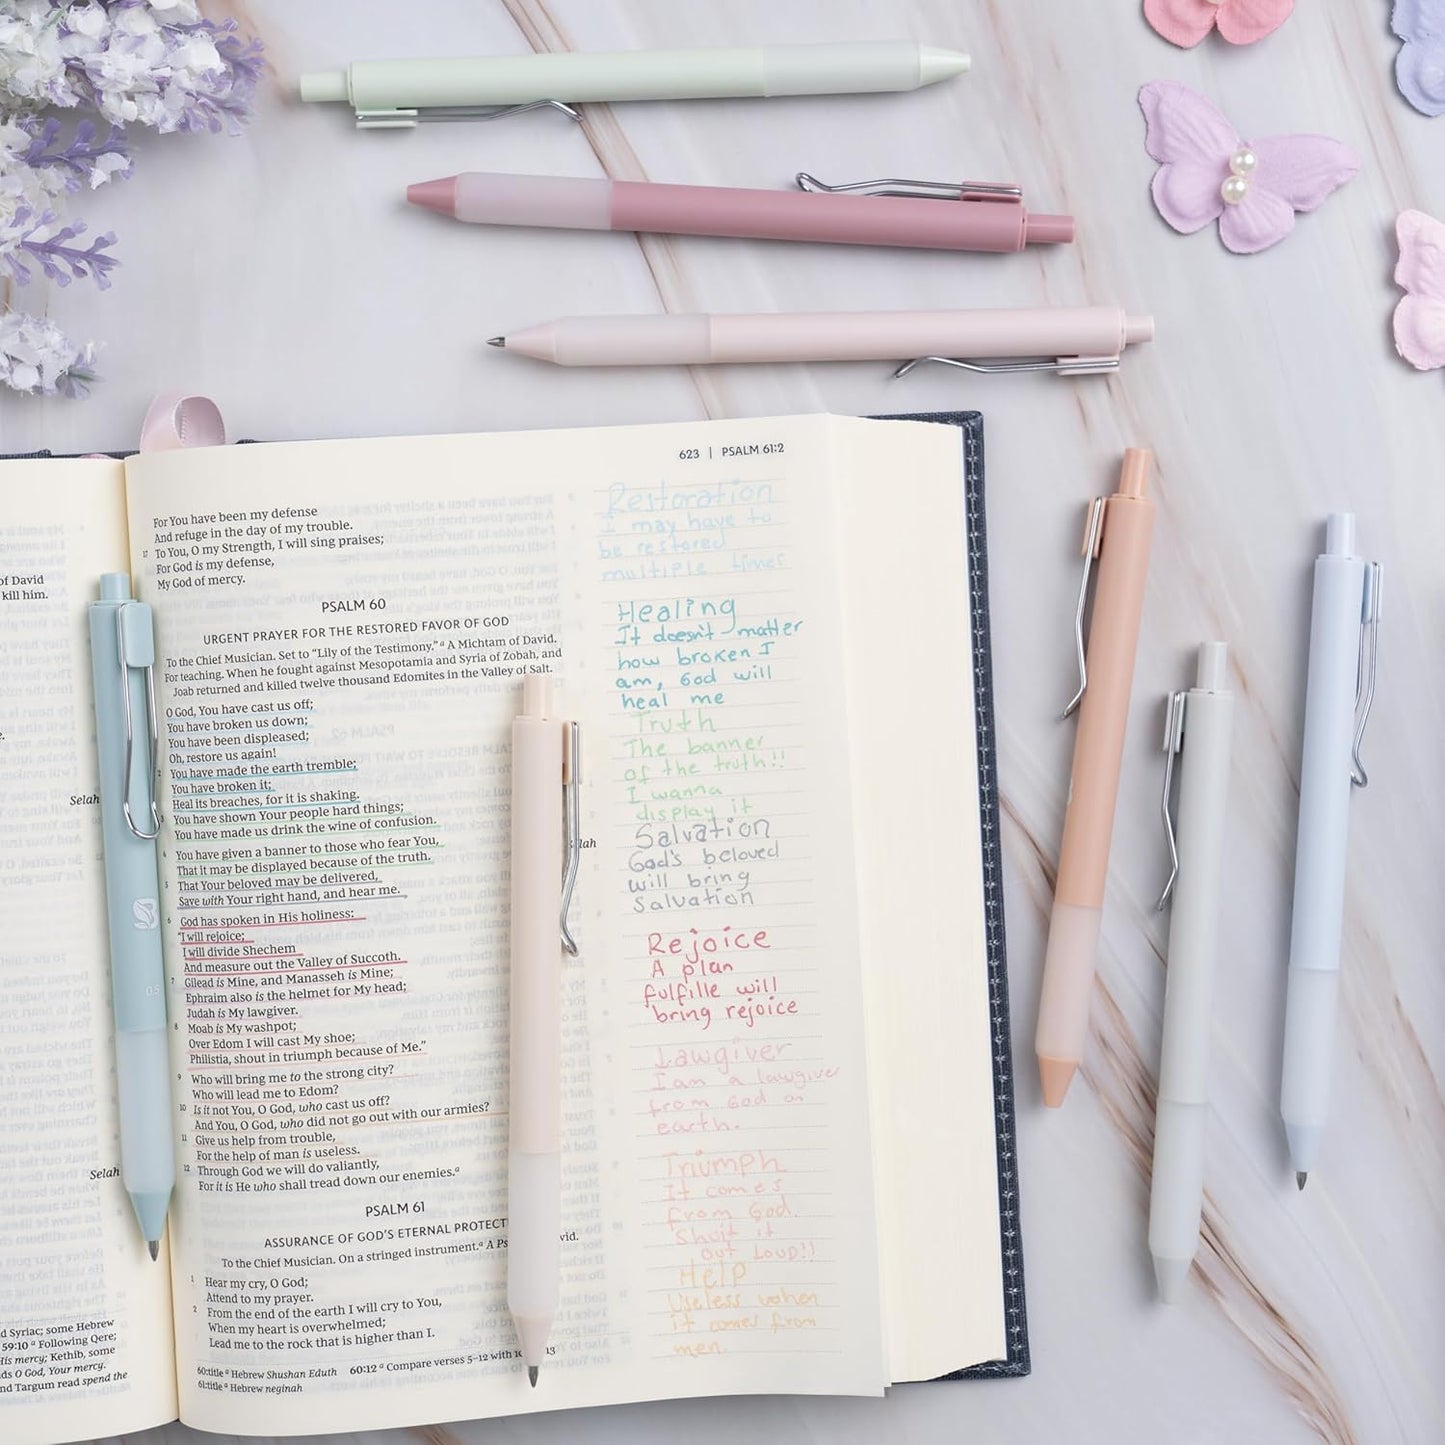 623 | PSALM 61:2
of David
kill him.
Selah
Selah
d Syriac; some Hebrew
59:10 ª Following Qere;
His mercy; Kethib, some
ds O God, Your mercy.
nd Targum read spend the
For You have been my defense
And refuge in the day of my trouble.
17 To You, O my Strength, I will sing praises;
For God is my defense,
My God of mercy.
PSALM 60
URGENT PRAYER FOR THE RESTORED FAVOR OF GOD
To the Chief Musician. Set to “Lily of the Testimony.” ª A Michtam of David.
For teaching. When he fought against Mesopotamia and Syria of Zobah, and
Joab returned and killed twelve thousand Edomites in the Valley of Salt.
O God, You have cast us off;
You have broken us down;
You have been displeased;
Oh, restore us again!
2 You have made the earth tremble;
You have broken it;
Heal its breaches, for it is shaking.
3 You have shown Your people hard things;
You have made us drink the wine of confusion.
4 You have given a banner to those who fear You,
That it may be displayed because of the truth.
lah
5 That Your beloved may be delivered,
Save with Your right hand, and hear me.
6 God has spoken in His holiness:
“I will rejoice;
I will divide Shechem
And measure out the Valley of Succoth.
7 Gilead is Mine, and Manasseh is Mine;
Ephraim also is the helmet for My head;
Judah is My lawgiver.
8 Moab is My washpot;
Over Edom I will cast My shoe;
Philistia, shout in triumph because of Me.”
9 Who will bring me to the strong city?
Who will lead me to Edom?
10 Is it not You, O God, who cast us off?
And You, O God, who did not go out with our armies?
11 Give us help from trouble,
For the help of man is useless.
12 Through God we will do valiantly,
For it is He who shall tread down our enemies.ª
PSALM 61
ASSURANCE OF GOD’S ETERNAL PROTECT
To the Chief Musician. On a stringed instrument.ª A Ps vid.
1 Hear my cry, O God;
Attend to my prayer.
2 From the end of the earth I will cry to You,
When my heart is overwhelmed;
Lead me to the rock that is higher than I.
60:title ª Hebrew Shushan Eduth 60:12 ª Compare verses 5–12 with 13
61:title ª Hebrew neginah
Restoration
I may have to
be restored
multiple times
Healing
It doesn't matter
how broken I
am, God will
heal me
Truth
The banner
of the truth!!
I wanna
display it
Salvation
God's beloved
will bring
salvation
Rejoice
A plan
fulfille will
bring rejoice
Lawgiver
I am a lawgiver
from God on
earth.
Triumph
It comes
from God.
Shuit it
out loup!!
Help
Useless wohen
it comes from
men.
0.5